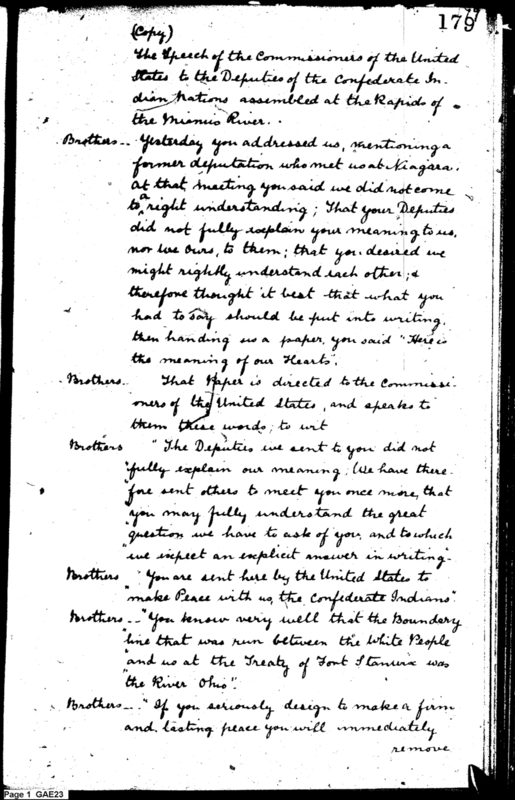 179
77
(Copy)
The Speech of the Commissioners of the United
States to the Deputies of the Confederate In-
dian Nations assembled at the Rapids of
the Miamis River..
Brothers -- Yesterday you addressed us, mentioning a
former deputation who met us at Niagara.
At that meeting you said we did not come
to a right understanding; That your Deputies
did not fully explain your meaning to us,
nor we ours, to them; that you desired we
might rightly understand each other; &
therefore thought it best that what you
had to say should be put into writing.
then handing us a paper, you said "Here is
the meaning of our Hearts".
Brothers -- That Paper is directed to the Commissi-
oners of the United States, and speaks to
them these words; to wit
Brothers "The Deputies we sent to you did not
"fully explain our meaning; We have there-
"fore sent others to meet you once more, that
"you may fully understand the great
"question we have to ask of you, and to which
"we expect an explicit answer in writing"
Brothers "You are sent here by the United States to
"make Peace with us, the Confederate Indians"
Brothers -- "You know very well that the Boundary
"line that was run between the White People
"and us at the Treaty of Fort Stanwix was
"the River Ohio".
Brothers -- "If you seriously design to make a firm
and lasting peace you will immediately
remove
Page 1 GAE23